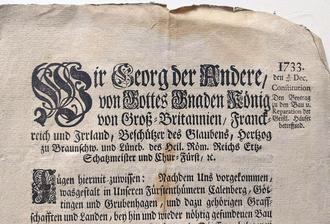 Wir Georg der Andere,
von Gottes Gnaden König
von Groß-Britannien, Franck-
reich und Irrland, Beschützer des Glaubens, Hertzog
zu Braunschw. und Lüneb. des Heil. Röm. Reichs Ertz-
Schatzmeister und Chur-Fürst, ꝛc.
Fügen hiermit zuwissen: Nachdem Uns vorgekommen,
wasgestalt in Unseren Fürstenthümern Calenberg, Göt-
tingen und Grubenhagen, und dazu gehörigen Graff-
schafften und Landen, bey hin und wieder nöthig gefundenen Bau
1733.
den Dec.
Constitution
Den Beytrag
zu den Bau u.
Reparation der
Geistl. Häuser
betreffend.